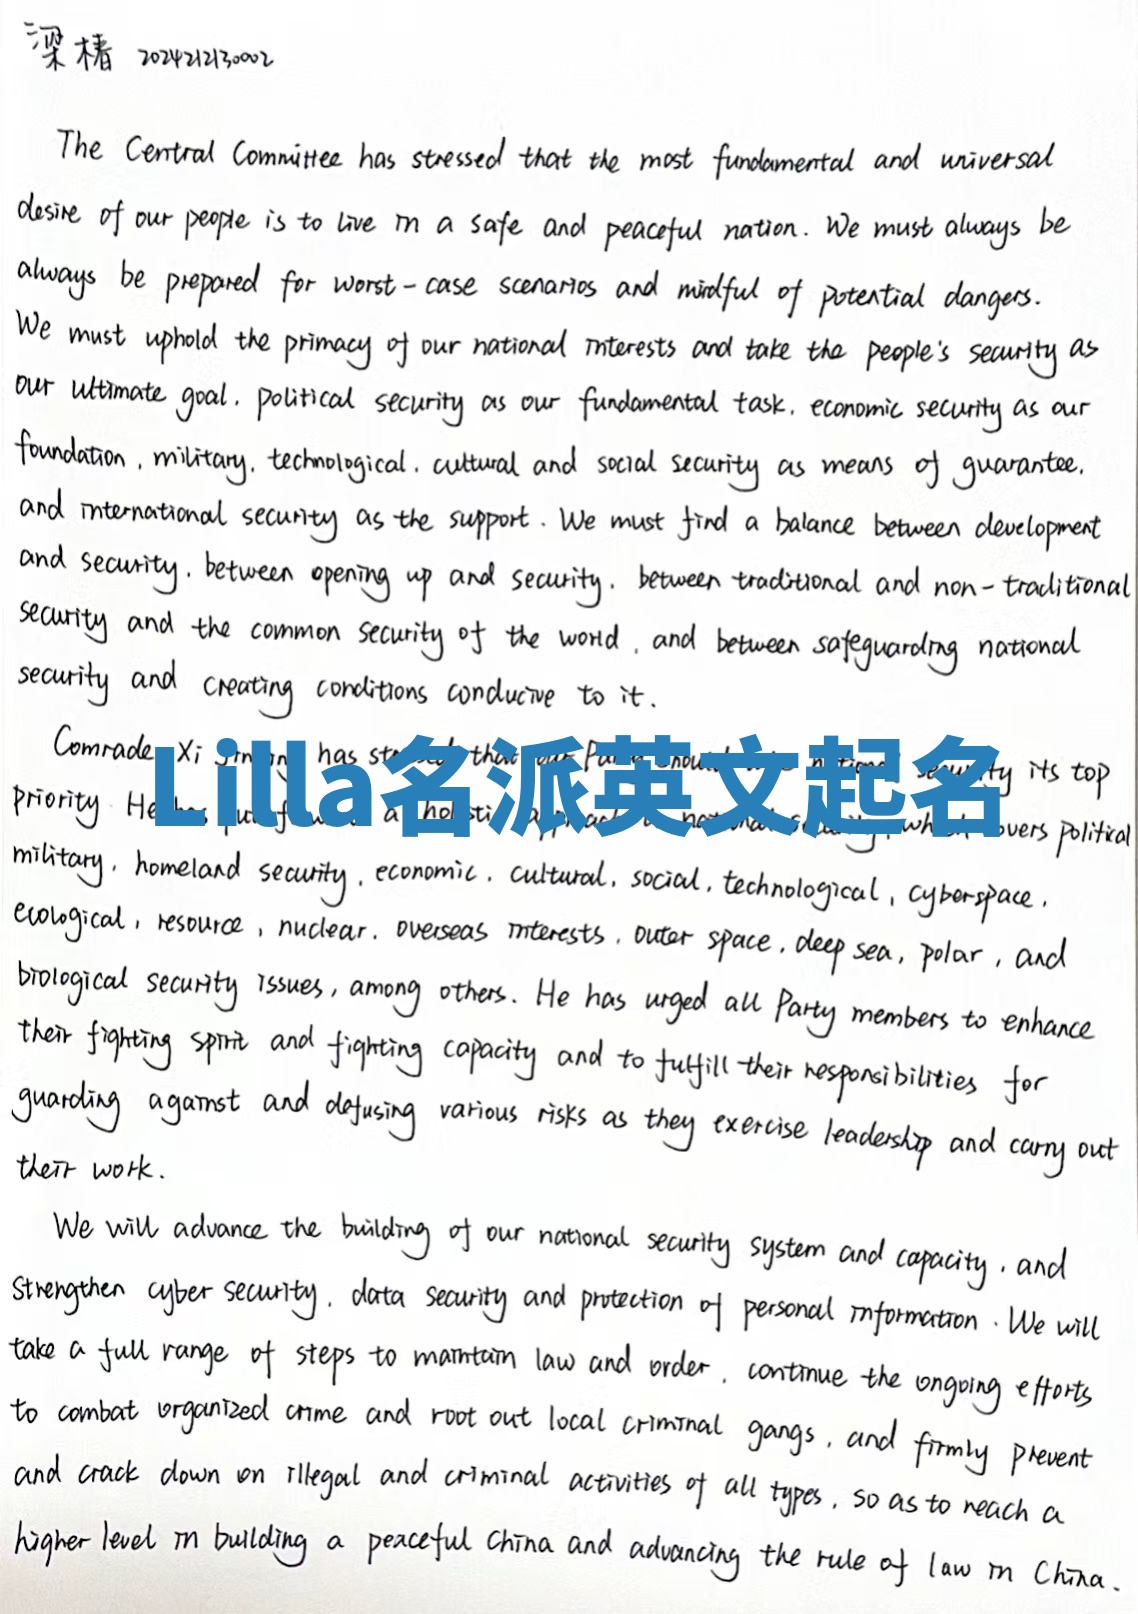 梁椿 2024212130002
The Central Committee has stressed that the most fundamental and universal
desire of our people is to live in a safe and peaceful nation. We must always be
always be prepared for worst-case scenarios and mindful of potential dangers.
We must uphold the primacy of our national interests and take the people's security as
our ultimate goal, political security as our fundamental task, economic security as our
foundation, military, technological, cultural and social security as means of guarantee,
and international security as the support. We must find a balance between development
and security, between opening up and security, between traditional and non-traditional
security and the common security of the world, and between safeguarding national
security and creating conditions conducive to it.
Comrade Xi Jinping has stressed that our Party should national security its top
Lilla名派英文起名
priority. He has put forward a holistic approach to national security, which covers political
military, homeland security, economic, cultural, social, technological, cyberspace,
ecological, resource, nuclear, overseas interests, outer space, deep sea, polar, and
biological security issues, among others. He has urged all Party members to enhance
their fighting spirit and fighting capacity and to fulfill their responsibilities for
guarding against and defusing various risks as they exercise leadership and carry out
their work.
We will advance the building of our national security system and capacity, and
strengthen cyber security, data security and protection of personal information. We will
take a full range of steps to maintain law and order, continue the ongoing efforts
to combat organized crime and root out local criminal gangs, and firmly prevent
and crack down on illegal and criminal activities of all types, so as to reach a
higher level in building a peaceful China and advancing the rule of law in China.